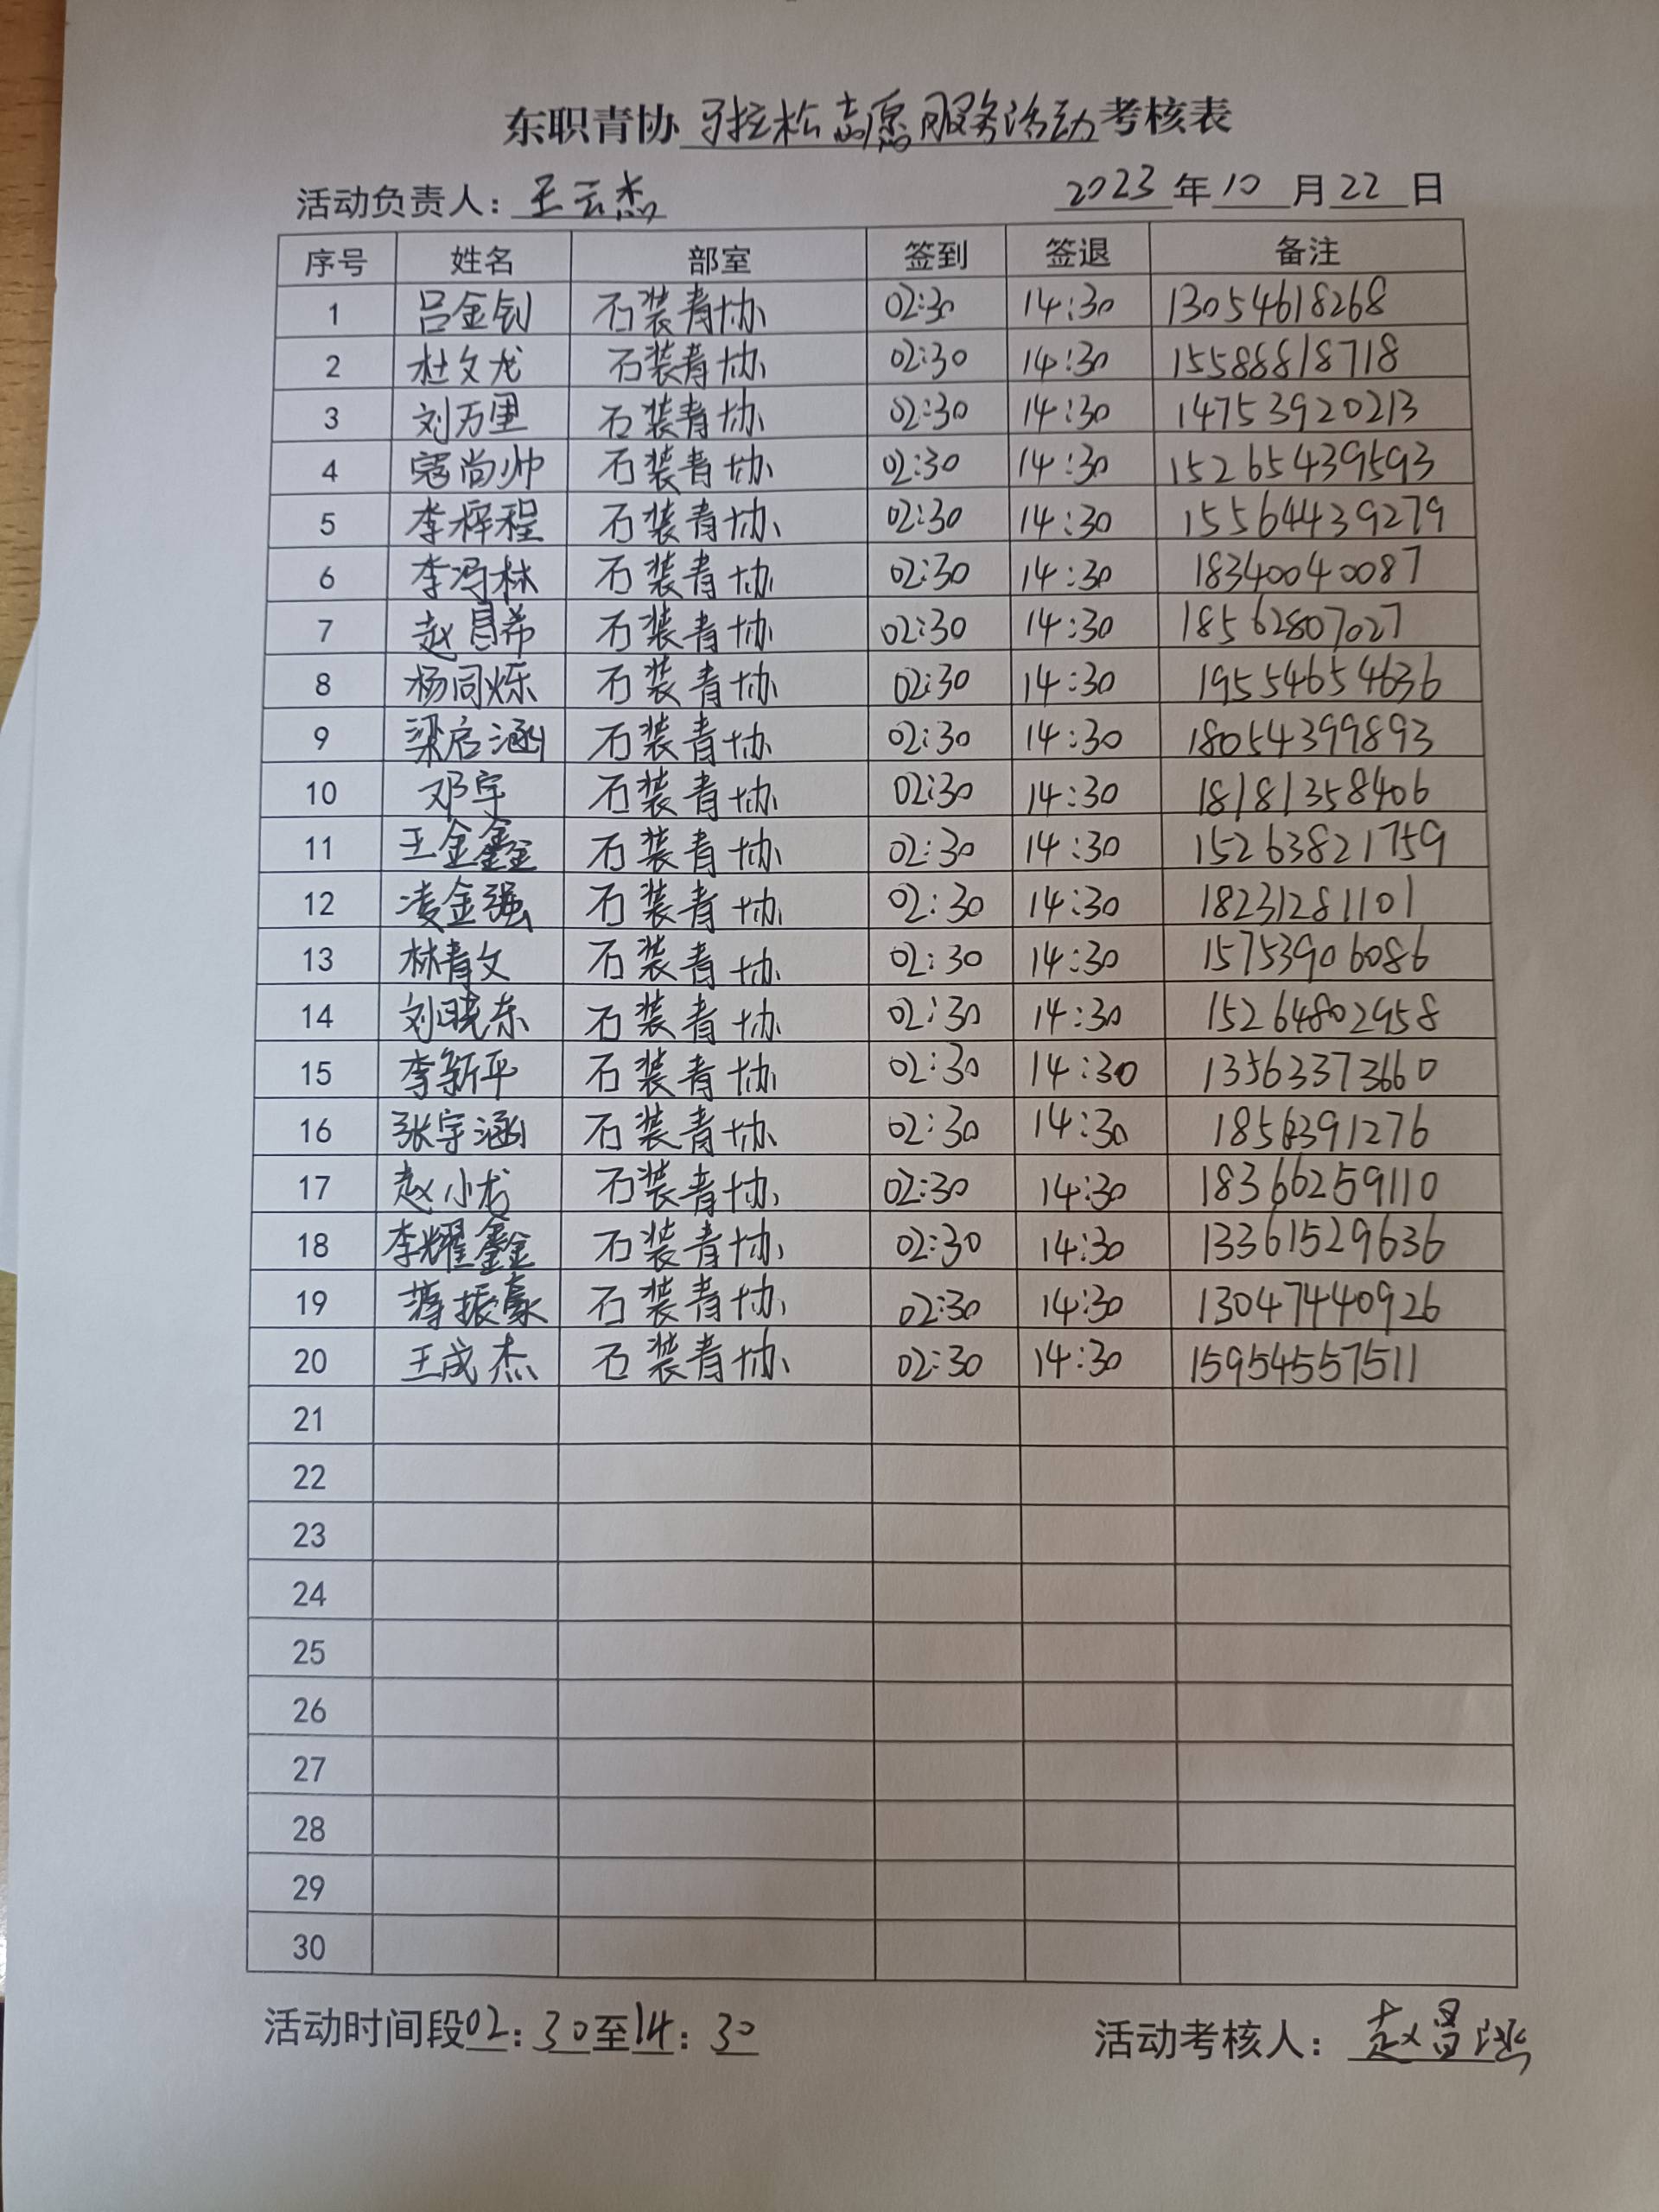 东职青协马拉松志愿服务活动考核表
活动负责人：王云杰 2023年10月22日
序号 姓名 部室 签到 签退 备注
1 吕金钊 石装青协 02:30 14:30 13054618268
2 杜文龙 石装青协 02:30 14:30 15588818718
3 刘万里 石装青协 02:30 14:30 14753920213
4 寇尚帅 石装青协 02:30 14:30 15265439593
5 李梓程 石装青协 02:30 14:30 15564439279
6 李冯林 石装青协 02:30 14:30 18340040087
7 赵昌希 石装青协 02:30 14:30 18562807027
8 杨同烁 石装青协 02:30 14:30 19554654636
9 梁启涵 石装青协 02:30 14:30 18054399893
10 邓宇 石装青协 02:30 14:30 18181358406
11 王金鑫 石装青协 02:30 14:30 15263821759
12 凌金强 石装青协 02:30 14:30 18231281101
13 林青文 石装青协 02:30 14:30 15753906086
14 刘晓东 石装青协 02:30 14:30 15264802958
15 李新平 石装青协 02:30 14:30 13563373660
16 张宇涵 石装青协 02:30 14:30 1856391276
17 赵小龙 石装青协 02:30 14:30 18366259110
18 李耀鑫 石装青协 02:30 14:30 13361529636
19 振豪 石装青协 02:30 14:30 13047440926
20 王成杰 石装青协 02:30 14:30 15954557511
21
22
23
24
25
26
27
28
29
30
活动时间段02：30至14：30 活动考核人：赵昌